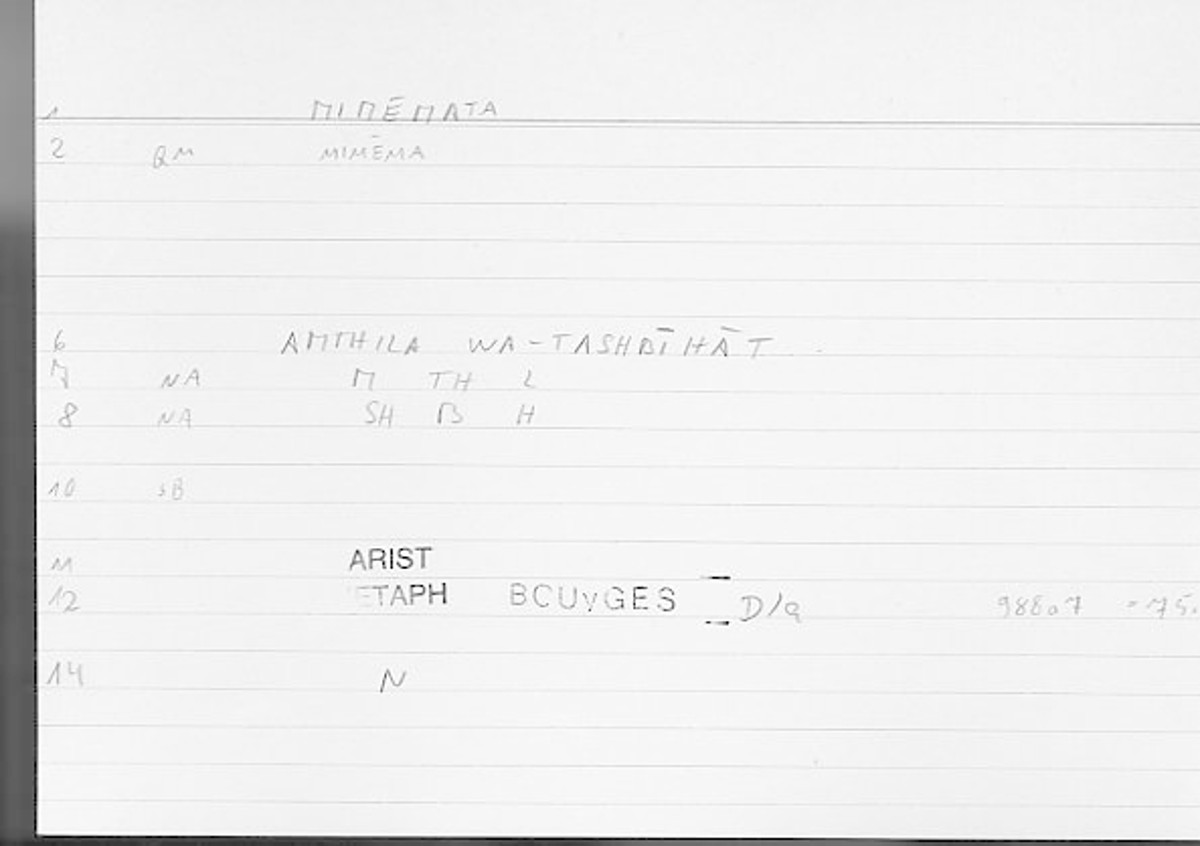 1 MIMĒMATA
2 QM MIMĒMA
6 AMTHILA WA-TASHBĪHĀT
7 NA M TH L
8 NA SH B H
10 SB
11 ARIST
12 ETAPH BOUYGES D/a 988a7 -75.
14 N